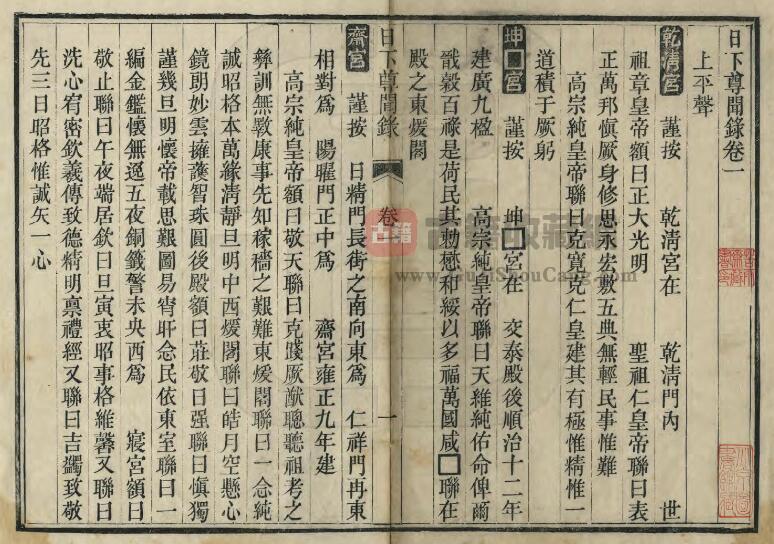 日下尊聞錄卷一
上平聲
乾淸宮 謹按 乾淸宮在 乾淸門內 世
祖章皇帝額曰正大光明 聖祖仁皇帝聯曰表
正萬邦愼厥身修思永宏敷五典無輕民事惟難
高宗純皇帝聯曰克寬克仁皇建其有極惟精惟一
道積于厥躬
坤□宮 謹按 坤□宮在 交泰殿後順治十二年
建廣九楹 高宗純皇帝聯曰天維純佑命俾爾
戩穀百祿是荷民其勅懋和綏以多福萬國咸□聯在
殿之東煖閣
日下尊聞錄 卷一 一
齋宮 謹按 日精門長街之南向東爲 仁祥門再東
相對爲 陽曜門正中爲 齋宮雍正九年建
高宗純皇帝額曰敬天聯曰克踐厥猷聰聽祖考之
彝訓無斁康事先知稼穡之艱難東煖閣聯曰一念純
誠昭格本萬緣淸靜旦明中西煖閣聯曰皓月空懸心
鏡朗妙雲擁護智珠圓後殿額曰莊敬日强聯曰愼獨
謹幾旦明懷帝載思艱圖易宵旰念民依東室聯曰一
編金鑑懷無逸五夜銅籤警未央西爲 寢宮額曰
敬止聯曰午夜端居欽曰旦寅衷昭事格維馨又聯曰
洗心宥密欽羲傳致德精明稟禮經又聯曰吉蠲致敬
先三日昭格惟誠矢一心
古籍收藏網
www.GujiShouCang.com